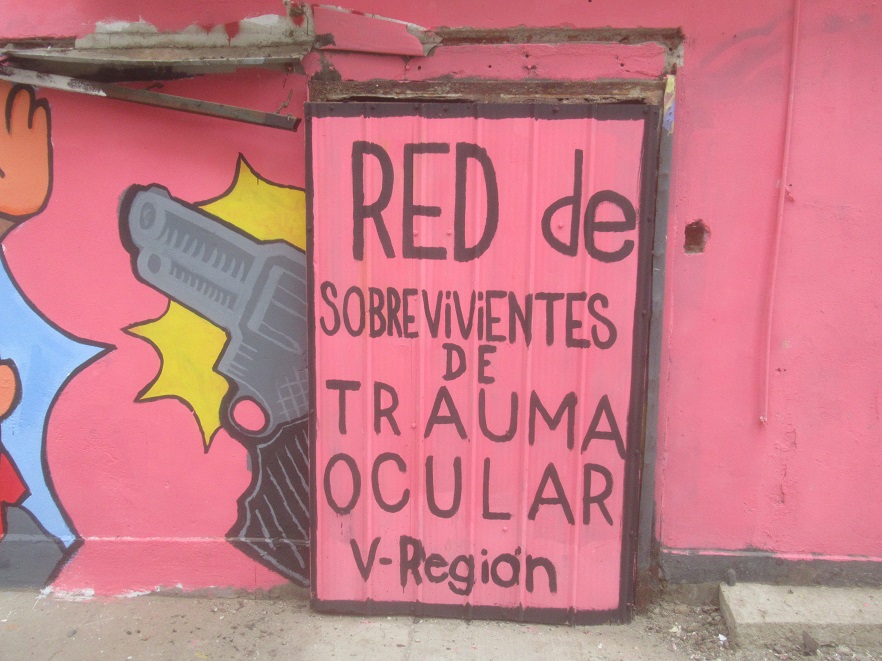 RED de
SOBREViViENTES
DE
TRAUMA
OCULAR
V-Región